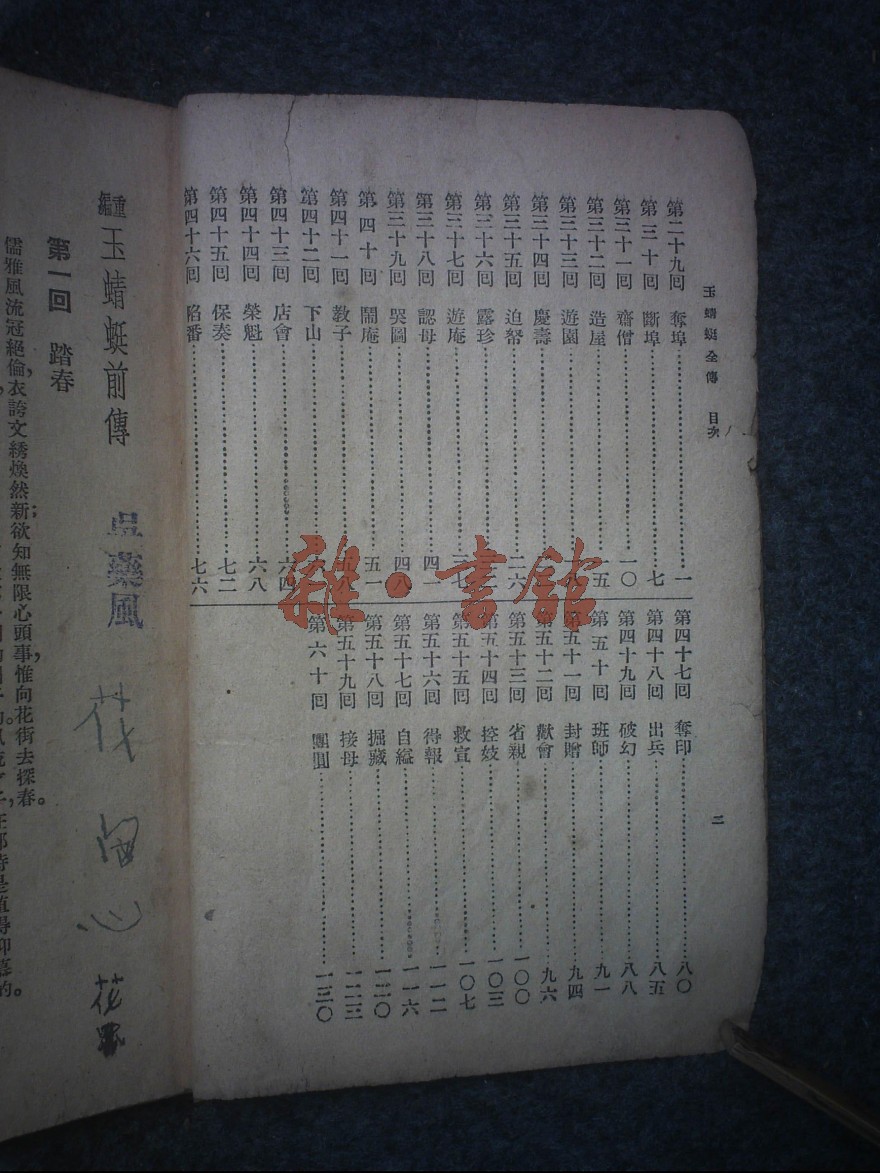 玉蜻蜓全傳 目次
二
第二十九回 奪埠 一
第三十回 斷埠 七
第三十一回 齋僧 一〇
第三十二回 造屋 一五
第三十三回 遊園
第三十四回 慶壽
第三十五回 迫帑 二六
第三十六回 露珍
第三十七回 遊庵
第三十八回 認母 四一
第三十九回 哭圖 四八
第四十回 鬧庵 五一
第四十一回 教子 五八
第四十二回 下山
第四十三回 店會 六四
第四十四回 榮魁 六八
第四十五回 保奏 七二
第四十六回 陷番 七六
第四十七回 奪印 八〇
第四十八回 出兵 八五
第四十九回 破幻 八八
第五十回 班師 九一
第五十一回 封贈 九四
第五十二回 歡會 九六
第五十三回 省親 一〇〇
第五十四回 控妓 一〇三
第五十五回 救宣 一〇七
第五十六回 得報 一一二
第五十七回 自縊 一一六
第五十八回 掘藏 一二〇
第五十九回 接母 一二三
第六十回 團圓 一三〇
雜·書館
重編 玉蜻蜓前傳
吳藥風
第一回 踏春
儒雅風流冠絕倫，衣誇文綉煥然新；欲知無限心頭事，惟向花街去探春。